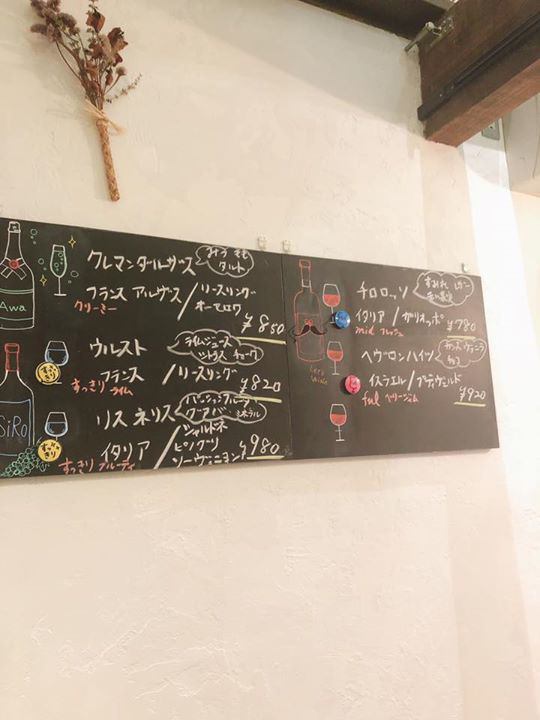 Awa
クレマンダルザス
みつ もも
タルト
フランス アルザス / リースリング
オーセロワ
クリーミー
¥850
ウルスト
ライムジュース
フランス / リースリング
すっきり ライム
¥820
SiRo
すっきり
リス ネリス
パッションフルーツ
グアバ
ミネラル
イタリア / シャルドネ
ピノグリ
ソーヴィニヨン
すっきり フルーティ
¥980
Let's
チロロッソ
すみれ
イタリア / ガリオッポ
mid フレッシュ
¥780
ヘヴロンハイツ
チョコ
イスラエル / プティヴェルド
ful
¥920